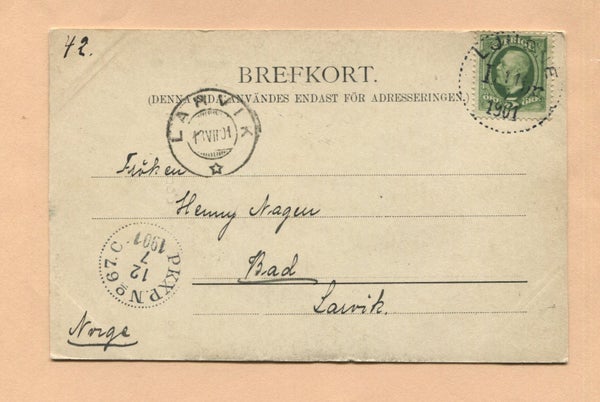 42.
SVERIGE
BREFKORT.
(DENNA SIDA ANVÄNDES ENDAST FÖR ADRESSERINGEN.)
1901
LARVIK
13 VII 01
Fröken
Henny Nagen
Bad
Larvik.
PKXP. No 67. C.
12
7
1901
Norge